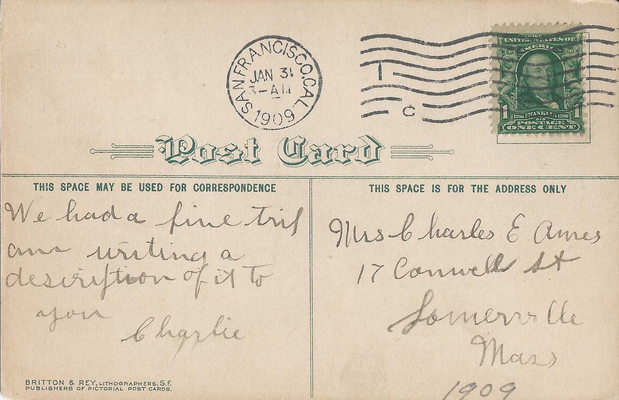 SAN FRANCISCO, CAL.
JAN 31
3-AM
1909
1
C
UNITED STATES OF AMERICA
1 1
POSTAGE
ONE CENT
Post Card
THIS SPACE MAY BE USED FOR CORRESPONDENCE
THIS SPACE IS FOR THE ADDRESS ONLY
We had a fine trip
am writing a
description of it to
you
Charlie
Mrs Charles E Ames
17 Conwell St
Somerville
Mass
1909
BRITTON & REY, LITHOGRAPHERS, S.F.
PUBLISHERS OF PICTORIAL POST CARDS.